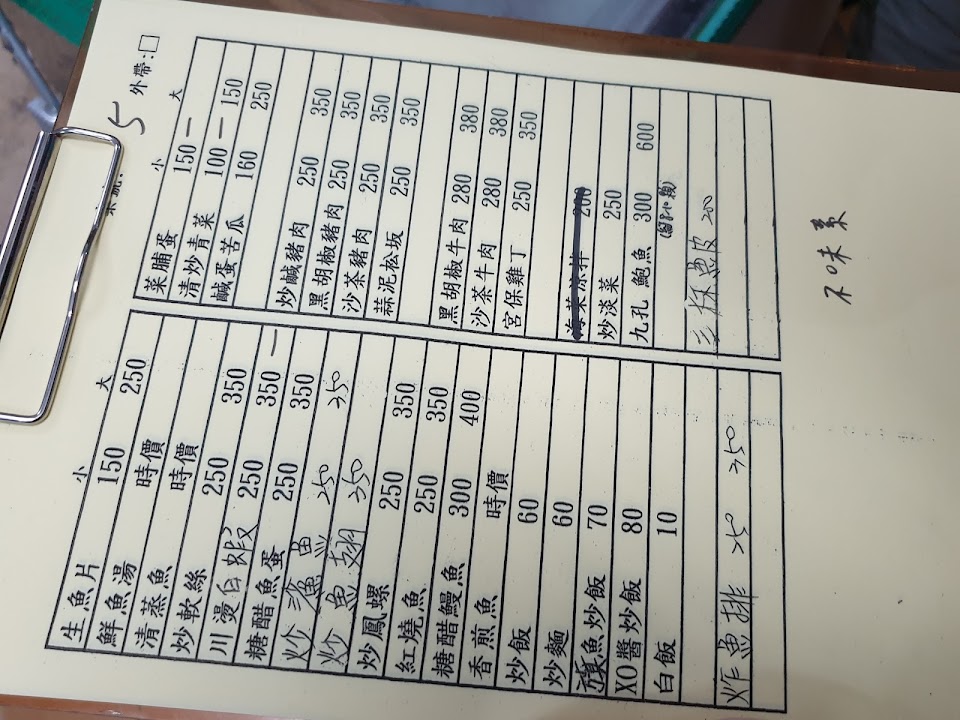 5 外帶:□
小 大
生魚片 150 250
鮮魚湯 時價
清蒸魚 時價
炒軟絲 250 350
川燙白蝦 250 350
糖醋魚蛋 250 350
炒鯊魚 250 350
炒魚翅 350
炒鳳螺 250 350
紅燒魚 250 350
糖醋鰻魚 300 400
香煎魚 時價
炒飯 60
炒麵 60
旗魚炒飯 70
XO醬炒飯 80
白飯 10
炸魚排 250 350
小 大
菜脯蛋 150 一
清炒青菜 100 一 150
鹹蛋苦瓜 160 250
炒鹹豬肉 250 350
黑胡椒豬肉 250 350
沙茶豬肉 250 350
蒜泥松坂 250 350
黑胡椒牛肉 280 380
沙茶牛肉 280 380
宮保雞丁 250 350
海菜涼拌 200
炒淡菜 250
九孔鮑魚 300 600
魚皮 200
味素